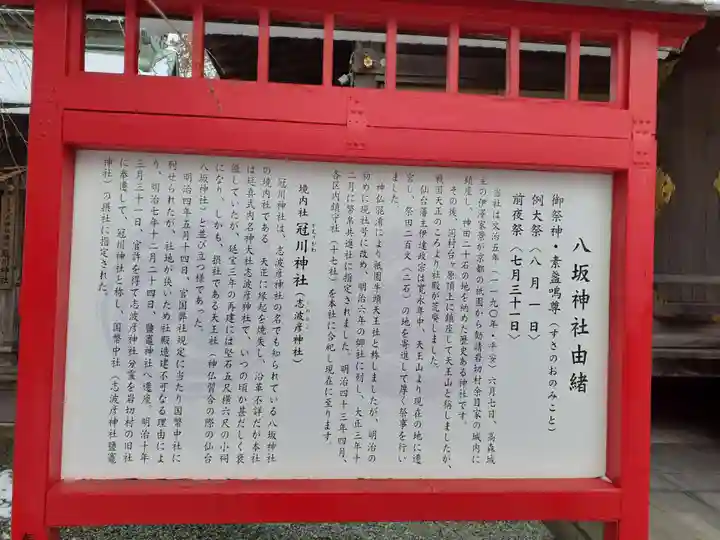 八坂神社由緒
御祭神・素盞嗚尊（すさのおのみこと）
例大祭〈八月一日〉
前夜祭〈七月三十一日〉
当社は文治五年（一一九〇年・平安）六月七日、高森城
主の伊澤家景が京都の祇園から勧請岩切村余目家の城内に
鎮座し、神田二十石の地を納めた歴史ある神社です。
その後、同村台ヶ原頂上に鎮座して天王山と称しましたが、
戦国天正のころより社殿が荒廃しました。
仙台藩主伊達政宗は寛永年中、天王山より現在の地に遷
宮し、祭田二百文（二石）の地を寄進して厚く祭事を行い
ました。
神仏混淆により祇園牛頭天王社と称しましたが、明治の
初めに現社号に改め、明治六年の郷社に列し、大正三年十
二月に幣帛共進社に指定されました。明治四十三年四月、
各区内鎮守社（十七社）を本社に合祀し現在に至ります。
境内社 冠川神社（志波彦神社）
冠川神社は、志波彦神社の名でも知られている八坂神社
の境内社である。天正に縁起を焼失し、沿革不詳だが本社
は延喜式内名神大社志波彦神社で、いつの頃か甚だしく衰
微していたが、延宝三年の再建には堅石五尺横六尺の小祠
になり、しかも、摂社である天王社（神仏習合の際の仙台
八坂神社）と並び立つ様であった。
明治四年五月十四日、官国弊社規定に当たり国幣中社に
列せられたが、社地が狭いため社殿造建不可なる理由によ
り、明治七年十二月二十四日、鹽竈神社へ遷座。明治十年
三月三十一日、官許を得て志波彦神社分霊を岩切村の旧社
に奉遷して、冠川神社と称し、国幣中社（志波彦神社鹽竈
神社）の摂社に指定された。